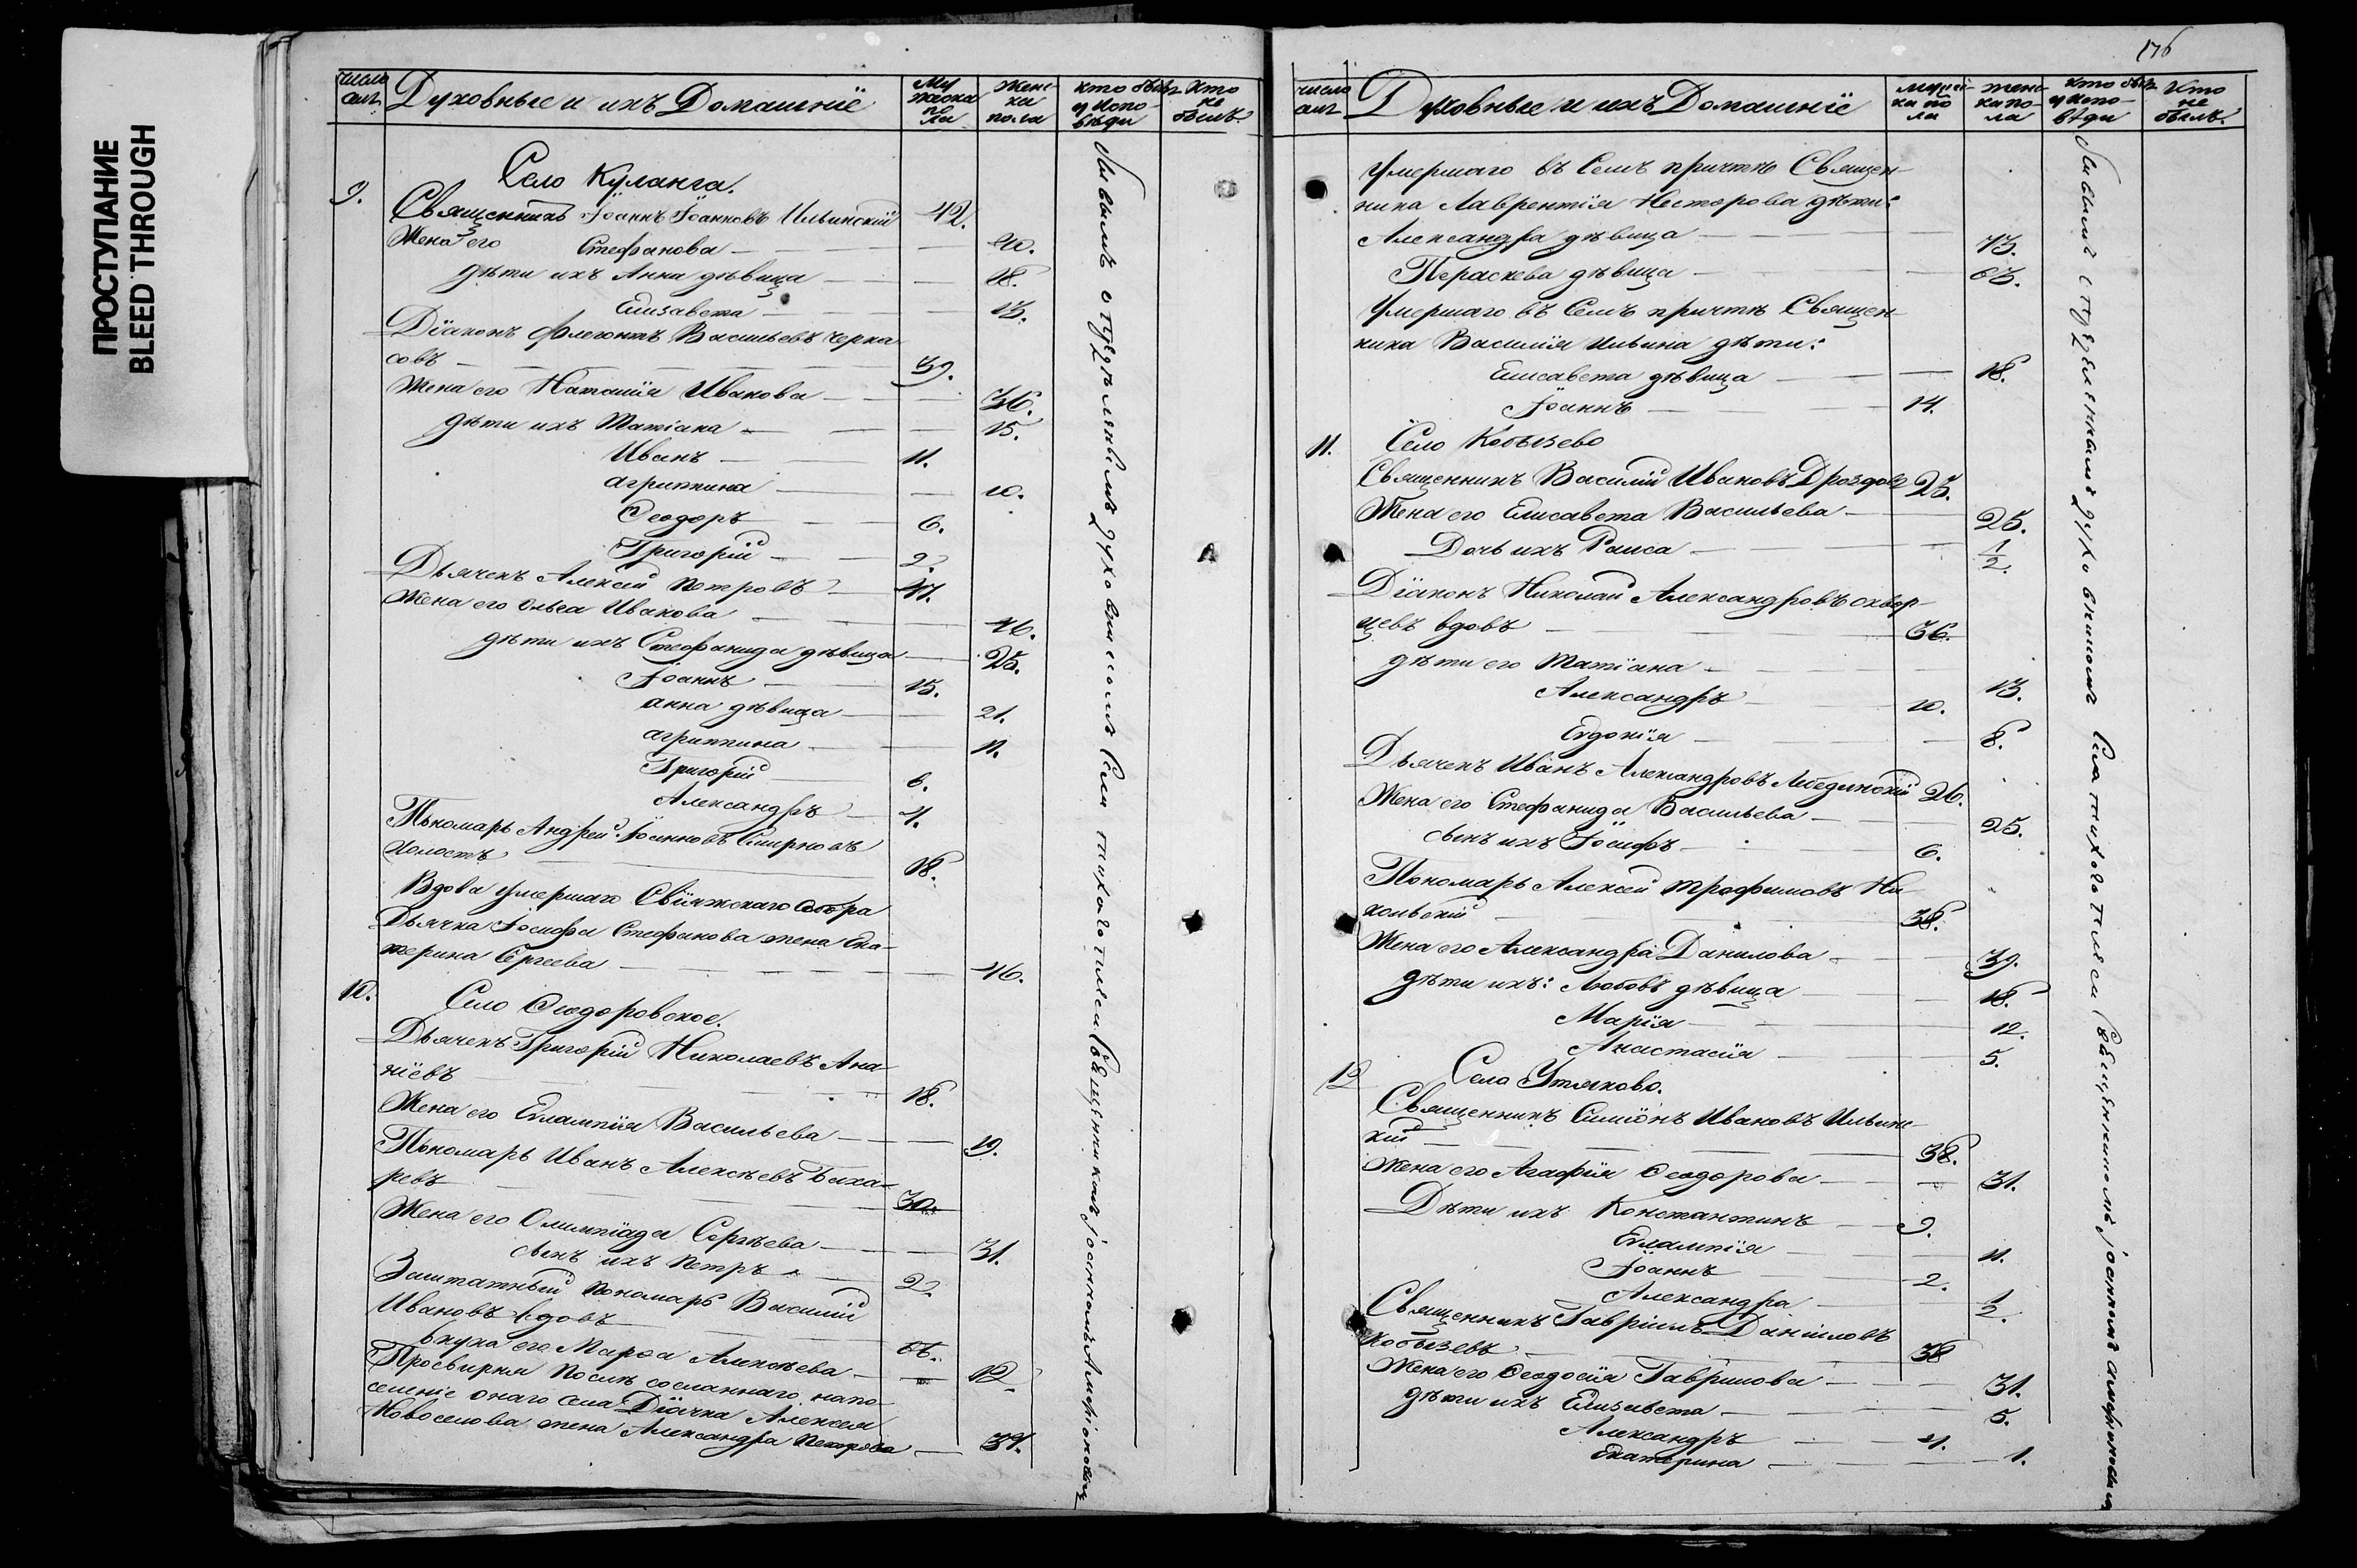 ПРОСТУПАНИЕ
BLEED THROUGH
число
Духовные и ихъ Домашніе
Му
жеска
по
ла
Женс
ка
пола
кто былъ
у испо-
вѣди
Кто
не
былъ.
Село Куланга.
9.
Священникъ Іоаннъ Іоанновъ Ильинскій 42.
Жена его Стефанова 40.
дѣти ихъ Анна дѣвица 18.
Елизавета 13.
Діаконъ Флегонтъ Васильевъ Черка
совъ 39.
Жена его Наталія Иванова 36.
дѣти ихъ Татіана 15.
Иванъ 11.
агрипина 10.
Ѳеодоръ 6.
Григорій 2.
Дьячекъ Алексѣй Петровъ 47.
Жена его Ольга Иванова 46.
дѣти ихъ Стефанида дѣвица 25.
Іоаннъ 15.
анна дѣвица 21.
агрипина 11.
Григорій 6.
Александръ 4.
Пономарь Андрей Іоанновъ Смирновъ
холостъ 18.
Вдова умершаго Свіяжскаго собора
Дьячка Іосифа Стефанова жена Ека-
терина Сергеева 46.
10.
Село Ѳеодоровское.
Дьячекъ Григорій Николаевъ Ана
ніевъ 18.
Жена его Евлампія Васильева 19.
Пономарь Иванъ Алексѣевъ Биха-
ревъ 30.
Жена его Олимпіада Сергѣева 31.
сынъ ихъ Петръ 2.
Заштатный пономарь Василій
Ивановъ вдовъ 66.
внука его Марѳа Алексѣева 12.
Просвирня послѣ сосланнаго на по
селеніе онаго села Діячка Алексея
Новоселова жена Александра 39.
176
число
Духовные и ихъ Домашніе
мужес
ка по
ла
женс
ка по-
ла
кто былъ
у испо-
вѣди
Кто
не
былъ.
Умершаго въ семъ причтѣ Священ
ника Лаврентія Нестерова дѣти:
Александра дѣвица 73.
Параскева дѣвица 63.
Умершаго въ Семъ причтѣ Священ
ника Василія Ильина дѣти:
Елисавета дѣвица 18.
Іоаннъ 14.
11.
Село Кобызево
Священникъ Василій Ивановъ Дроздовъ 25.
Жена его Елисавета Васильева 25.
Дочь ихъ Раиса 1/2.
Діаконъ Николай Александровъ Сквор-
цевъ вдовъ 36.
дѣти его Татіана 13.
Александръ 10.
Евдокія 8.
Дьячекъ Иванъ Александровъ Лебединскій 26.
Жена его Стефанида Васильева 25.
сынъ ихъ Іосифъ 6.
Пономарь Алексѣй Трофимовъ Ни
кольскій 38.
Жена его Александра Данилова 39.
дѣти ихъ: Любовь дѣвица 18.
Марія 12.
Анастасія 5.
12
Село Утяково.
Священникъ Симіонъ Ивановъ Ильинс
кій 38.
Жена его Агафія Ѳеодорова 31.
Дѣти ихъ Константинъ 9.
Евлампія 11.
Іоаннъ 2.
Александра 1/2.
Священникъ Гавріилъ Даніиловъ
Кобызевъ 38
Жена его Ѳеодосія Гаврилова 31.
дѣти ихъ Елизавета 5.
Александръ 4.
Екатерина 1.